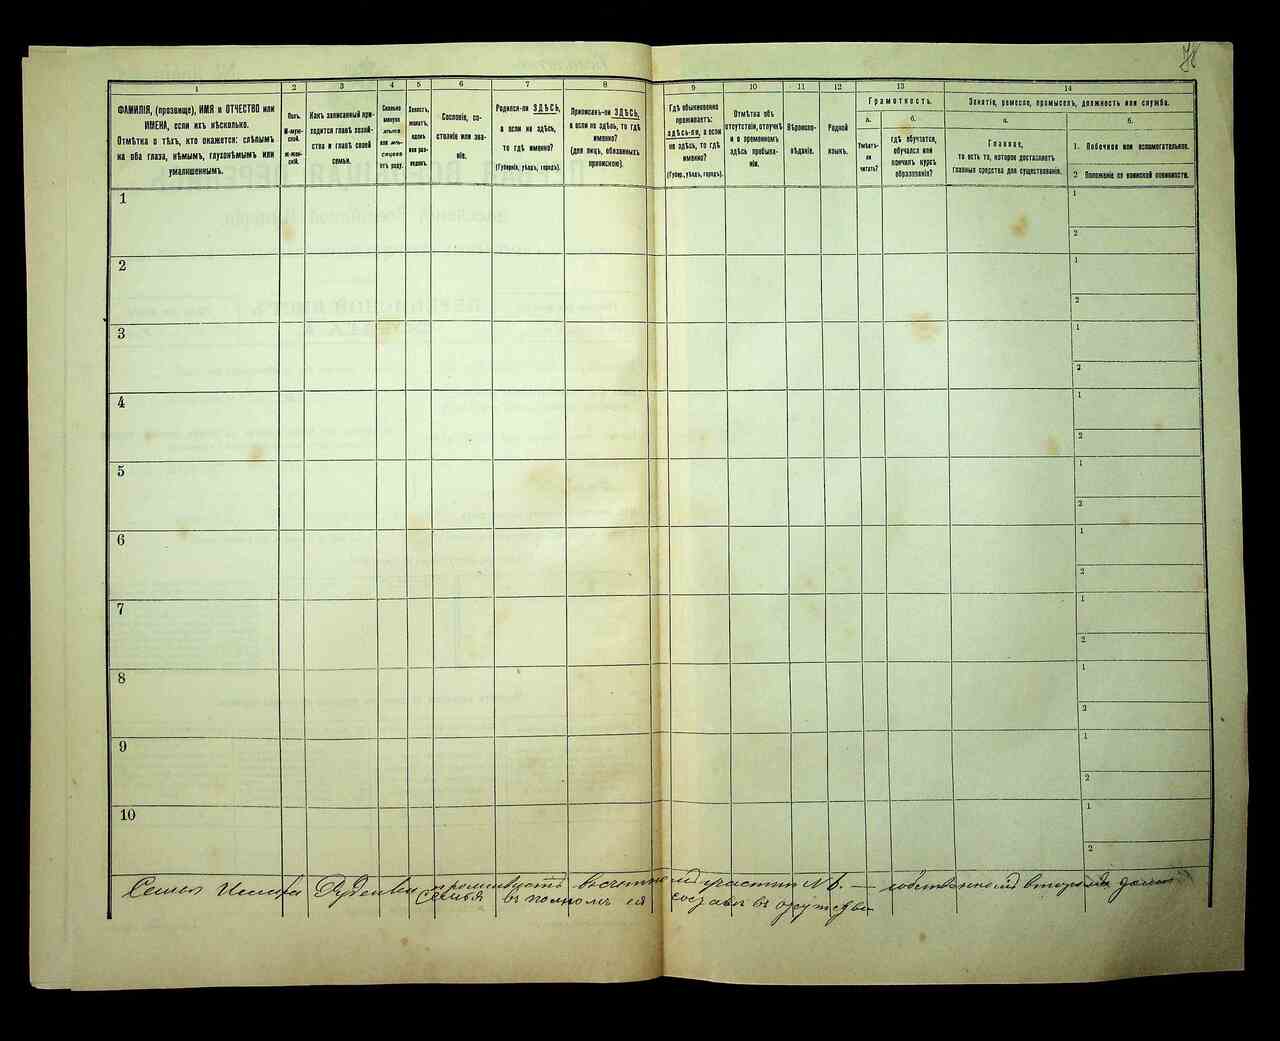 78
1
2
3
4
5
6
7
8
9
10
11
12
13
14
ФАМИЛІЯ, (прозвище), ИМЯ и ОТЧЕСТВО или
ИМЕНА, если ихъ нѣсколько.
Отмѣтка о тѣхъ, кто окажется: слѣпымъ
на оба глаза, нѣмымъ, глухонѣмымъ или
умалишеннымъ.
Полъ.
М-муж-
ской.
Ж-жен-
скій.
Какъ записанный при-
ходится главѣ хозяй-
ства и главѣ своей
семьи.
Сколько
минуло
лѣтъ
или мѣ-
сяцевъ
отъ роду.
Холостъ,
женатъ,
вдовъ
или раз-
веденъ.
Сословіе, со-
стояніе или зва-
ніе.
Родился-ли ЗДѢСЬ,
а если не здѣсь,
то гдѣ именно?
(Губернія, уѣздъ, городъ).
Приписанъ-ли ЗДѢСЬ,
а если не здѣсь, то гдѣ
именно?
(для лицъ, обязанныхъ
припискою).
Гдѣ обыкновенно
проживаетъ:
здѣсь-ли, а если
не здѣсь, то гдѣ
именно?
(Губер., уѣздъ, городъ).
Отмѣтка объ
отсутствіи, отлучкѣ
и о временномъ
здѣсь пребыва-
ніи.
Вѣроиспо-
вѣданіе.
Родной
языкъ.
Грамотность.
а.
Умѣетъ-
ли
читать?
б.
гдѣ обучается,
обучался или
кончилъ курсъ
образованія?
Занятіе, ремесло, промыселъ, должность или служба.
а.
Главное,
то есть то, которое доставляетъ
главныя средства для существованія.
б.
1. Побочное или вспомогательное.
2 Положеніе по воинской повинности.
1
1
2
2
1
2
3
1
2
4
1
2
5
1
2
6
1
2
7
1
2
8
1
2
9
1
2
10
1
2
Семья участки № — собственномъ второмъ домѣ
семья въ полномъ ея составѣ въ